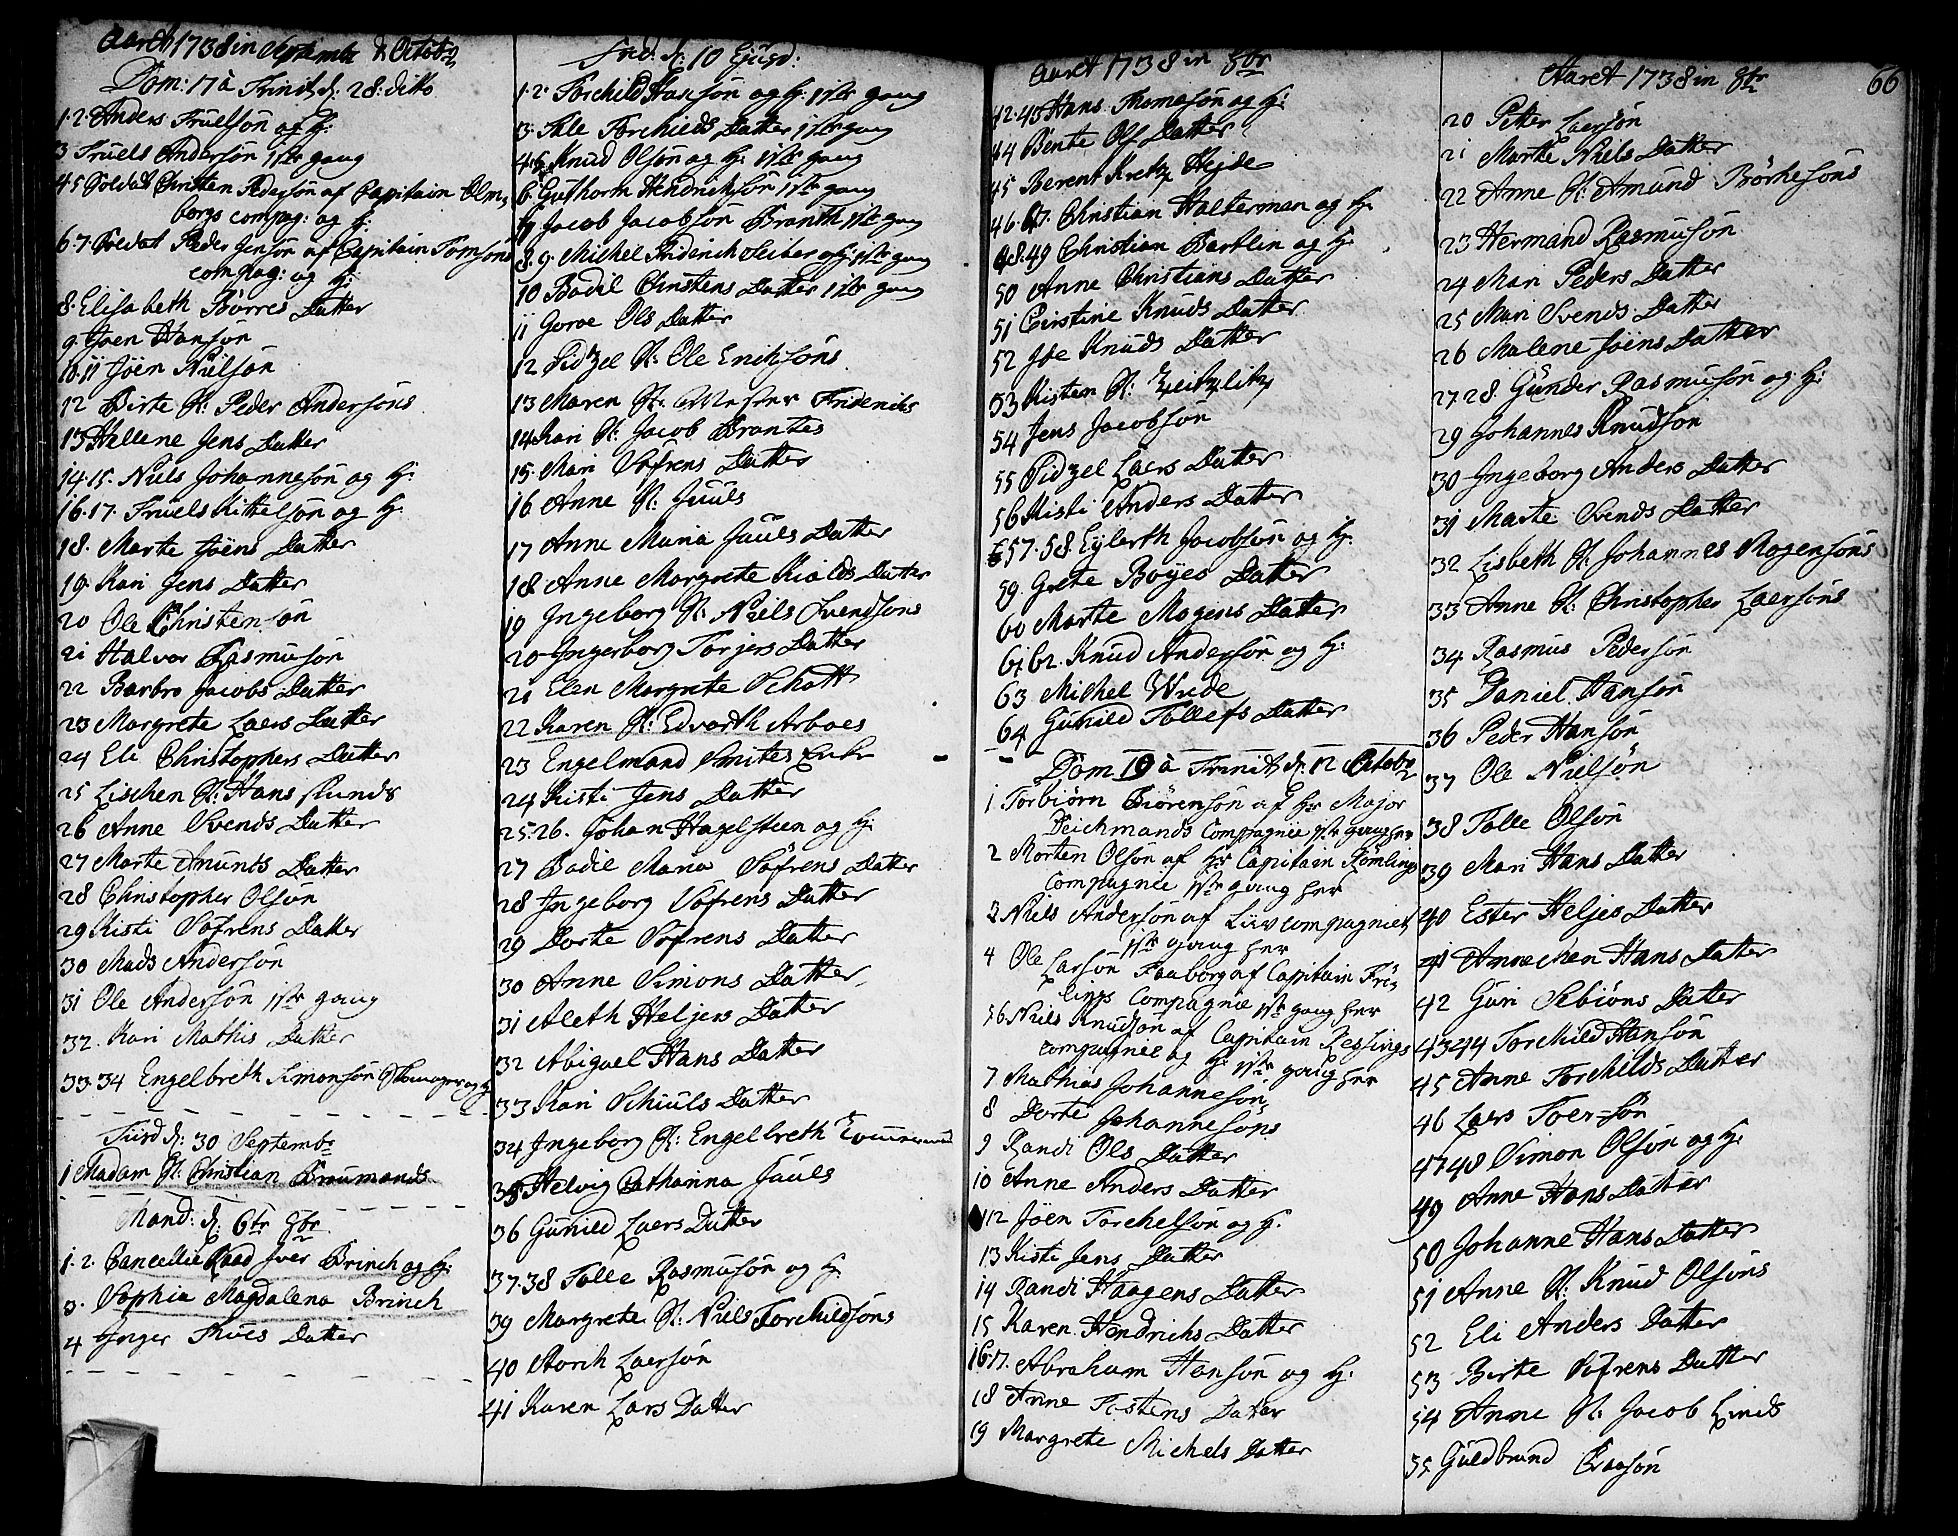 Aaret 1738 in Septembr & Octobr
Dom: 17 à Trinit. d: 28: ditto
1.2. Anders Truelsøn og H:
3 Truels Andersøn 1ste gang
4.5 Soldat Christen Pedersøn af Capitain Olm,
borgs compag: og H:
6.7. Soldat Peder Jensøn af Capitain Tomsons
compag: og H:
8. Elisabeth Børres Datter
9. Joen Hansøn
10.11 Jøen Nielsøn
12 Birte H: Peder Andersøns
13 Hellene Jens Datter
14.15. Niels Johannesøn og H:
16.17. Truels Kittelsøn og H:
18. Marte Jøens Datter
19. Kari Jens Datter
20 Ole Christensøn
21 Halvor Rasmusøn
22 Barbro Jacobs Datter
23 Margrete Laers Datter
24 Eli Christophers Datter
25 Lischen H: Hans Runds
26 Anne Svends Datter
27 Marte Amunts Datter
28 Christopher Olsøn
29 Kisti Søfrens Datter
30 Mads Andersøn
31 Ole Andersøn 1ste gang
32. Kari Mathis Datter
33.34 Engelbreth Simonsøn og H
Tirsd d: 30 Septembr
1 Madam H: Christian Braumands
Mand: d: 6te 8br
1.2. Cancellie Raad Iver Brinch og H:
3. Sophia Magdalena Brinch
4 Inger Thues Datter
Fred: d: 10 Ejusd:
1.2. Torchild Hansøn og H: 1ste gang
3. Tale Torchields Datter 1ste gang
4.5 Knud Olsøn og H: 1ste gang
6. Guthorm Hendrichsøn 1ste gang
7 Jacob Jacobsøn Branth 1ste gang
8.9. Michel Fridrich Seiber og H: 1ste gang
10 Bodil Christens Datter 1ste gang
11 Goroe Ols Datter
12 Sidzel H: Ole Erichsøns
13 Maren H: Mester Friderichs
14 Kari H: Jacob Brantes
15. Mari Søfrens Datter
16 Anne H: Juuls
17 Anne Maria Jauls Datter
18 Anne Margrete Kields Datter
19 Ingeborg H: Niels Svendsøns
20 Ingerborg Torjers Datter
21 Elen Margrete Schott
22 Karen H: Edvardth Arboes
23 Engelmand Smites Enke
24 Kisti Jens Datter
25.26. Johan Hagelsteen og H:
27 Bodil Maria Søfrens Datter
28 Ingeborg Søfrens Datter
29 Dorte Søfrens Datter
30 Anne Simons Datter
31 Aleth Heljers Datter
32 Abigael Hans Datter
33 Kari Schiuls Datter
34 Ingeborg H: Engelbreth
35 Helvig Catharina Jauls
36 Gunild Laers Datter
37.38 Tolle Rasmusøn og H:
39 Margrete H: Niels Torchildsøns
40 Aorich Laersøn
41 Karen Lars Datter
Aaret 1738 in 8br
42.43 Hans Thomesøn og H:
44 Bente Ols Datter
45 Berent Kretz Hejde
46.47. Christian Halterman og H:
48.49 Christian Bartlin og H:
50 Anne Christians Datter
51 Cirstine Knuds Datter
52 Joe Knuds Datter
53 Kisten H:
54 Jens Jacobsøn
55 Sidzel Laers Datter
56 Kisti Anders Datter
57.58. Eylerth Jacobsøn og H:
59. Grete Boyes Datter
60 Marte Mogens Datter
61.62. Knud Andersøn og H:
63 Michel Wride
64 Gunild Tollefs Datter
Dom 19 à Trinit d: 12 Octobr
1 Torbiørn Biørensøn af Hr Major
Deichmands Compagnie 1ste gang her
2 Morten Olsøn af Hr Capitain Römlings
Compagnie 1ste gang her
3 Niels Andersøn af Livcompagniet
1ste gang her
4 Ole Larsøn Faaborg af Capitain Frö,
lings Compagnie 1ste gang her
5.6 Niels Knudsøn af Capitain Ressings
compagnie og H: 1ste gang her
7 Mathias Johannesøn
8 Dorte Johannesøns
9 Randi Ols Datter
10 Anne Anders Datter
12 Jøen Torchelsøn og H:
13 Kisti Jens Datter
14 Randi Haagens Datter
15 Karen Hendrichs Datter
16.17. Abraham Hansøn og H:
18 Anne Tostens Datter
19 Margrete Michels Datter
Aaret 1738 in 8br
66
20 Petter Laersøn
21 Marthe Niels Datter
22 Anne H: Amund Børhesøns
23 Hermand Rasmusøn
24 Mari Peders Datter
25 Mari Svends Datter
26 Malene Jøens Datter
27.28. Gunder Rasmusøn og H:
29 Johannes Knudsøn
30 Ingeborg Anders Datter
31 Marte Svends Datter
32 Lisbeth H: Johannes Mogensøns
33 Anne H: Christopher Laersøns
34 Rasmus Pedersøn
35 Daniel Hansøn
36 Peder Hansøn
37 Ole Nielsøn
38 Tolle Olsøn
39 Mari Hans Datter
40 Ester Heljes Datter
41 Annechen Hans Datter
42 Guri Sebiøns Datter
43 44 Torchild Hansøn
45 Anne Torchilds Datter
46 Laers Toer=søn
47 48 Simon Olsøn og H:
49 Anne Hans Datter
50 Johanne Hans Datter
51 Anne H: Knud Olsøns
52 Eli Anders Datter
53 Birte Søfrens Datter
54 Anne H: Jacob Linds
55 Guldbrand Eraasøn